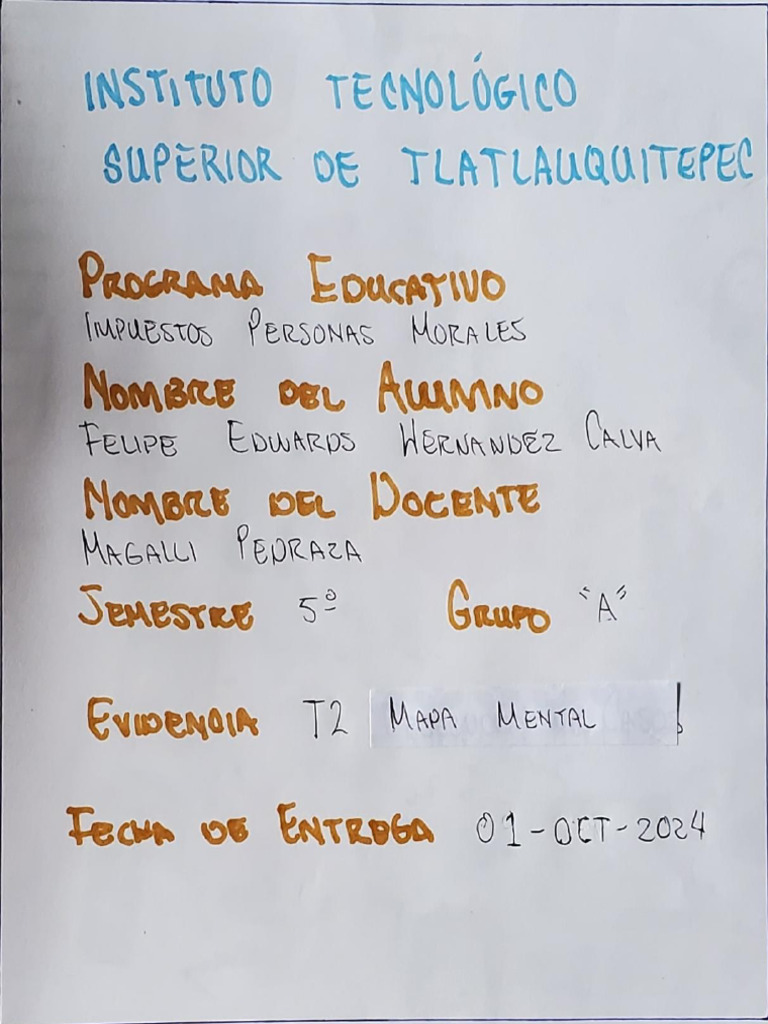 INSTITUTO TECNOLÓGICO
SUPERIOR DE TLATLAUQUITEPEC
PROGRAMA EDUCATIVO
IMPUESTOS PERSONAS MORALES
NOMBRE DEL ALUMNO
FELIPE EDWARDS HERNANDEZ CALVA
NOMBRE DEL DOCENTE
MAGALLI PEDRAZA
SEMESTRE 5º GRUPO "A"
EVIDENCIA T2 MAPA MENTAL
FECHA DE ENTREGA 01-OCT-2024